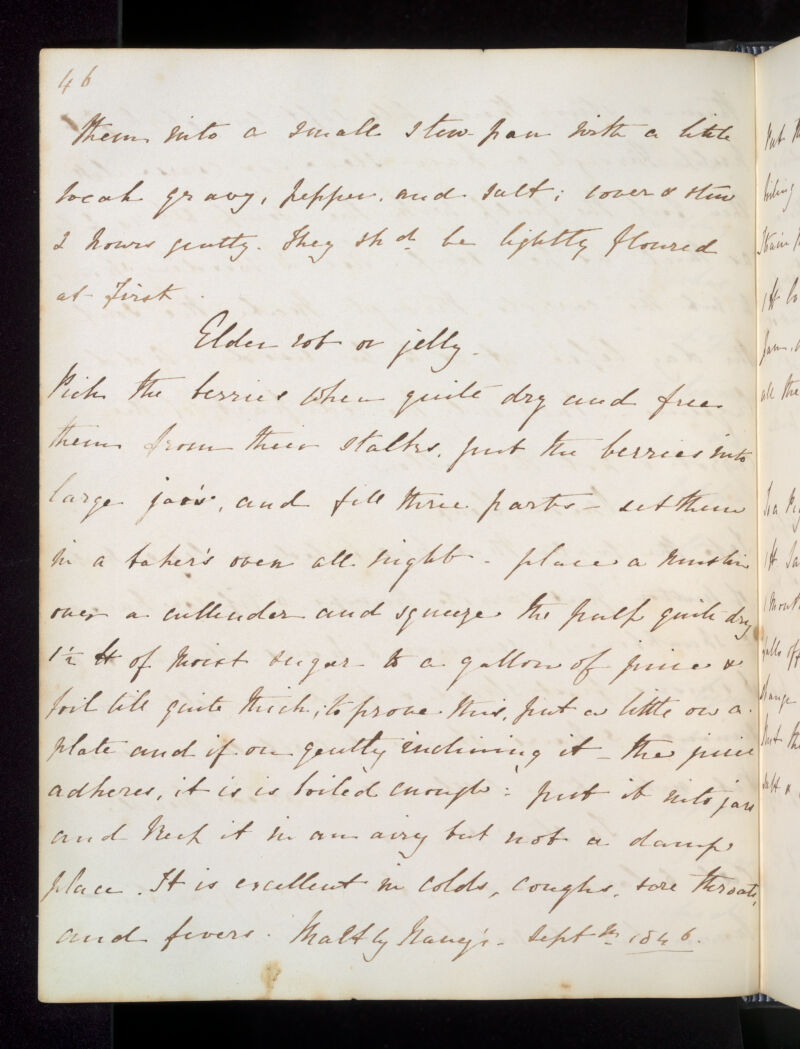 46
them into a small stew pan with a little
weak gravy, pepper, and salt; cover & stew
2 hours gently. They shd. be lightly floured
at first.
Elder rob or jelly.
Pick the berries when quite dry and free
them from their stalks. put the berries into
large jars, and fill three parts - set them
in a baker's oven all night - place a muslin
over a cullender and squeeze the pulp quite dry
1½ lb of moist sugar to a gallon of juice &
boil till quite thick; to prove this, put a little on a
plate and if on gently inclining it - the juice
adheres, it is is boiled enough: put it into jars
and keep it in an airy but not a damp
place. It is excellent in colds, coughs, sore throats,
and fevers. Maltby Sept 1846.
Put
boiling
Strain
1 lb
all the
1 lb
1 month
falls off